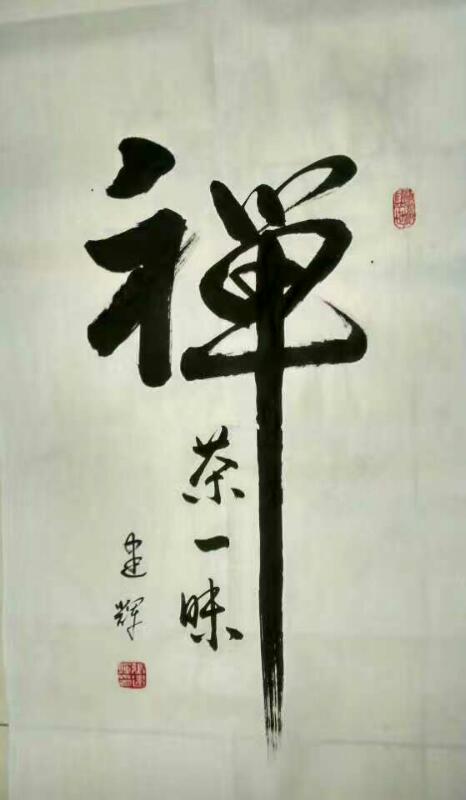 禅
茶一味
建辉